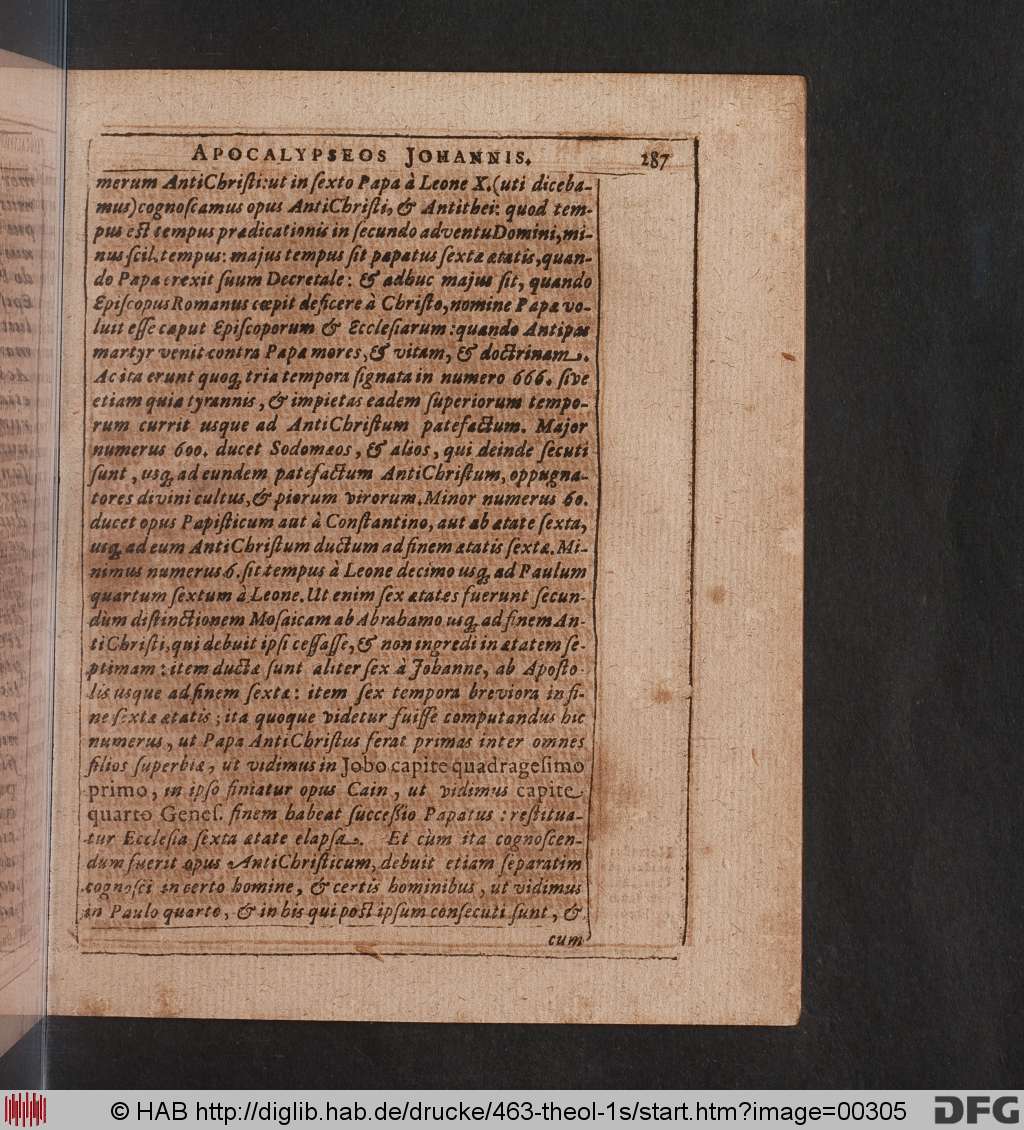 APOCALYPSEOS JOHANNIS. 287
merum AntiChristi: ut in sexto Papa à Leone X. (uti diceba-
mus) cognoscamus opus AntiChristi, & Antithei: quod tem-
pus est tempus prædicationis in secundo adventu Domini, mi-
nus scil. tempus: majus tempus sit papatus sextæ ætatis, quan-
do Papa erexit suum Decretale: & adhuc majus sit, quando
Episcopus Romanus cœpit deficere à Christo, nomine Papa vo-
luit esse caput Episcoporum & Ecclesiarum: quando Antipas
martyr venit contra Papa mores, & vitam, & doctrinam.
Ac ita erunt quoq; tria tempora signata in numero 666. sive
etiam quia tyrannis, & impietas eadem superiorum tempo-
rum currit usque ad AntiChristum patefactum. Major
numerus 600. ducet Sodomæos, & alios, qui deinde secuti
sunt, usq; ad eundem patefactum AntiChristum, oppugna-
tores divini cultus, & piorum virorum. Minor numerus 60.
ducet opus Papisticum aut à Constantino, aut ab ætate sexta,
usq; ad eum AntiChristum ductum ad finem ætatis sextæ. Mi-
nimus numerus 6. sit tempus à Leone decimo usq; ad Paulum
quartum sextum à Leone. Ut enim sex ætates fuerunt secun-
dùm distinctionem Mosaicam ab Abrahamo usq; ad finem An-
tiChristi, qui debuit ipsi cessasse, & non ingredi in ætatem se-
ptimam: item ductæ sunt aliter sex à Johanne, ab Aposto-
lis usque ad finem sextæ: item sex tempora breviora in fi-
ne sextæ ætatis; ita quoque videtur fuisse computandus hic
numerus, ut Papa AntiChristus ferat primas inter omnes
filios superbiæ, ut vidimus in Jobo capite quadragesimo
primo, in ipso finiatur opus Cain, ut vidimus capite
quarto Genes. finem habeat successio Papatus: restitua-
tur Ecclesia sexta ætate elapsa. Et cùm ita cognoscen-
dum fuerit opus AntiChristicum, debuit etiam separatim
cognosci in certo homine, & certis hominibus, ut vidimus
in Paulo quarto, & in his qui post ipsum consecuti sunt, &
cum
© HAB http://diglib.hab.de/drucke/463-theol-1s/start.htm?image=00305 DFG